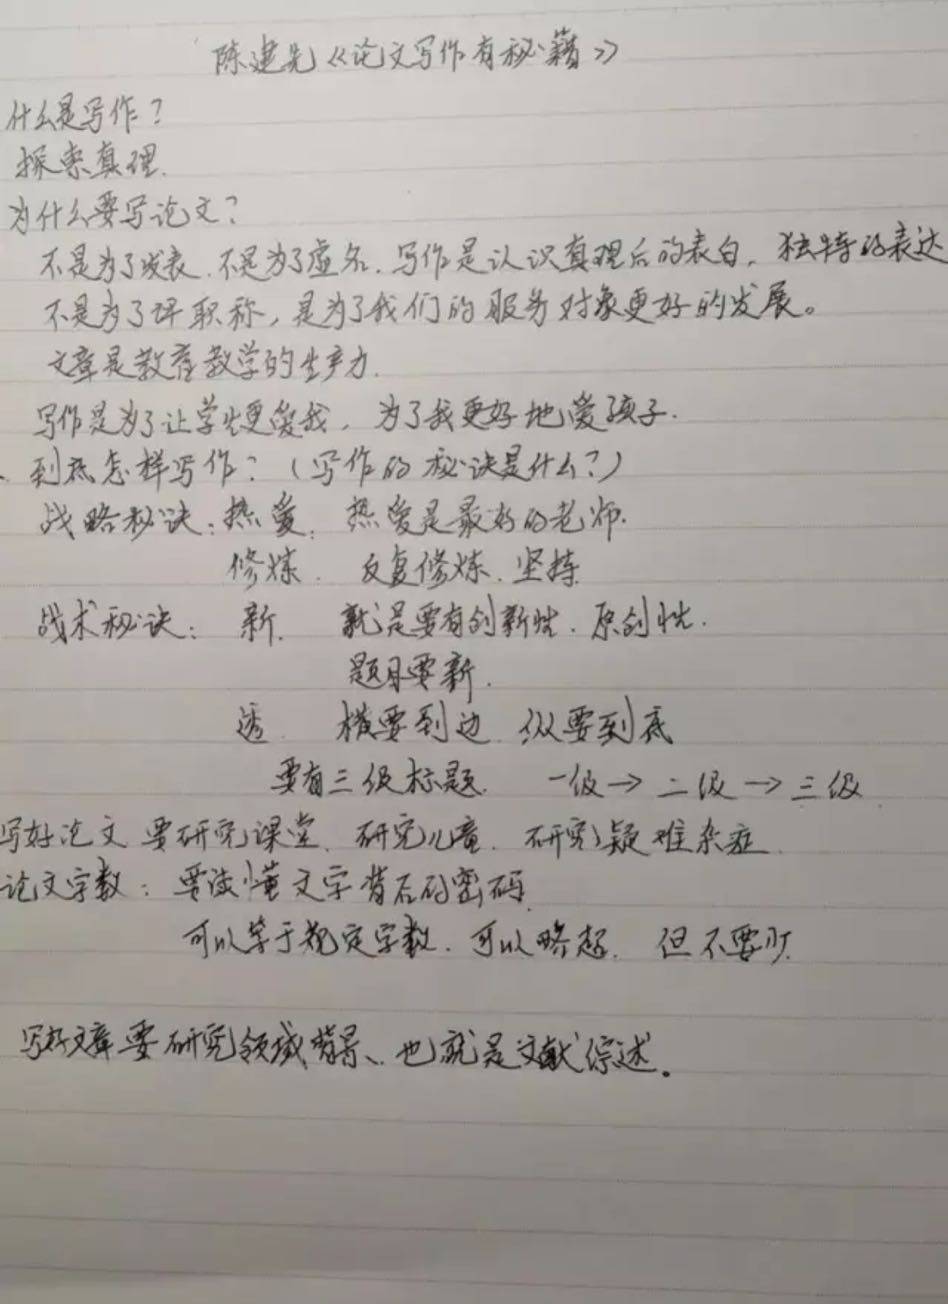 陈建先《论文写作有秘籍》
什么是写作？
探索真理.
为什么要写论文？
不是为了发表.不是为了虚名.写作是认识真理后的表白.独特的表达
不是为了评职称，是为了我们的服务对象更好的发展。
文章是教育教学的生产力.
写作是为了让学生更爱我，为了我更好地爱孩子.
、到底怎样写作？（写作的秘诀是什么？）
战略秘诀：热爱. 热爱是最好的老师.
修炼. 反复修炼.坚持.
战术秘诀： 新. 就是要有创新性.原创性.
题目要新.
透. 横要到边.纵要到底
要有三级标题. 一级→二级→三级
写好论文要研究课堂.研究儿童.研究疑难杂症.
论文字数：要读懂文字背后的密码.
可以等于规定字数.可以略超.但不要少.
写好文章要研究领域背景、也就是文献综述。